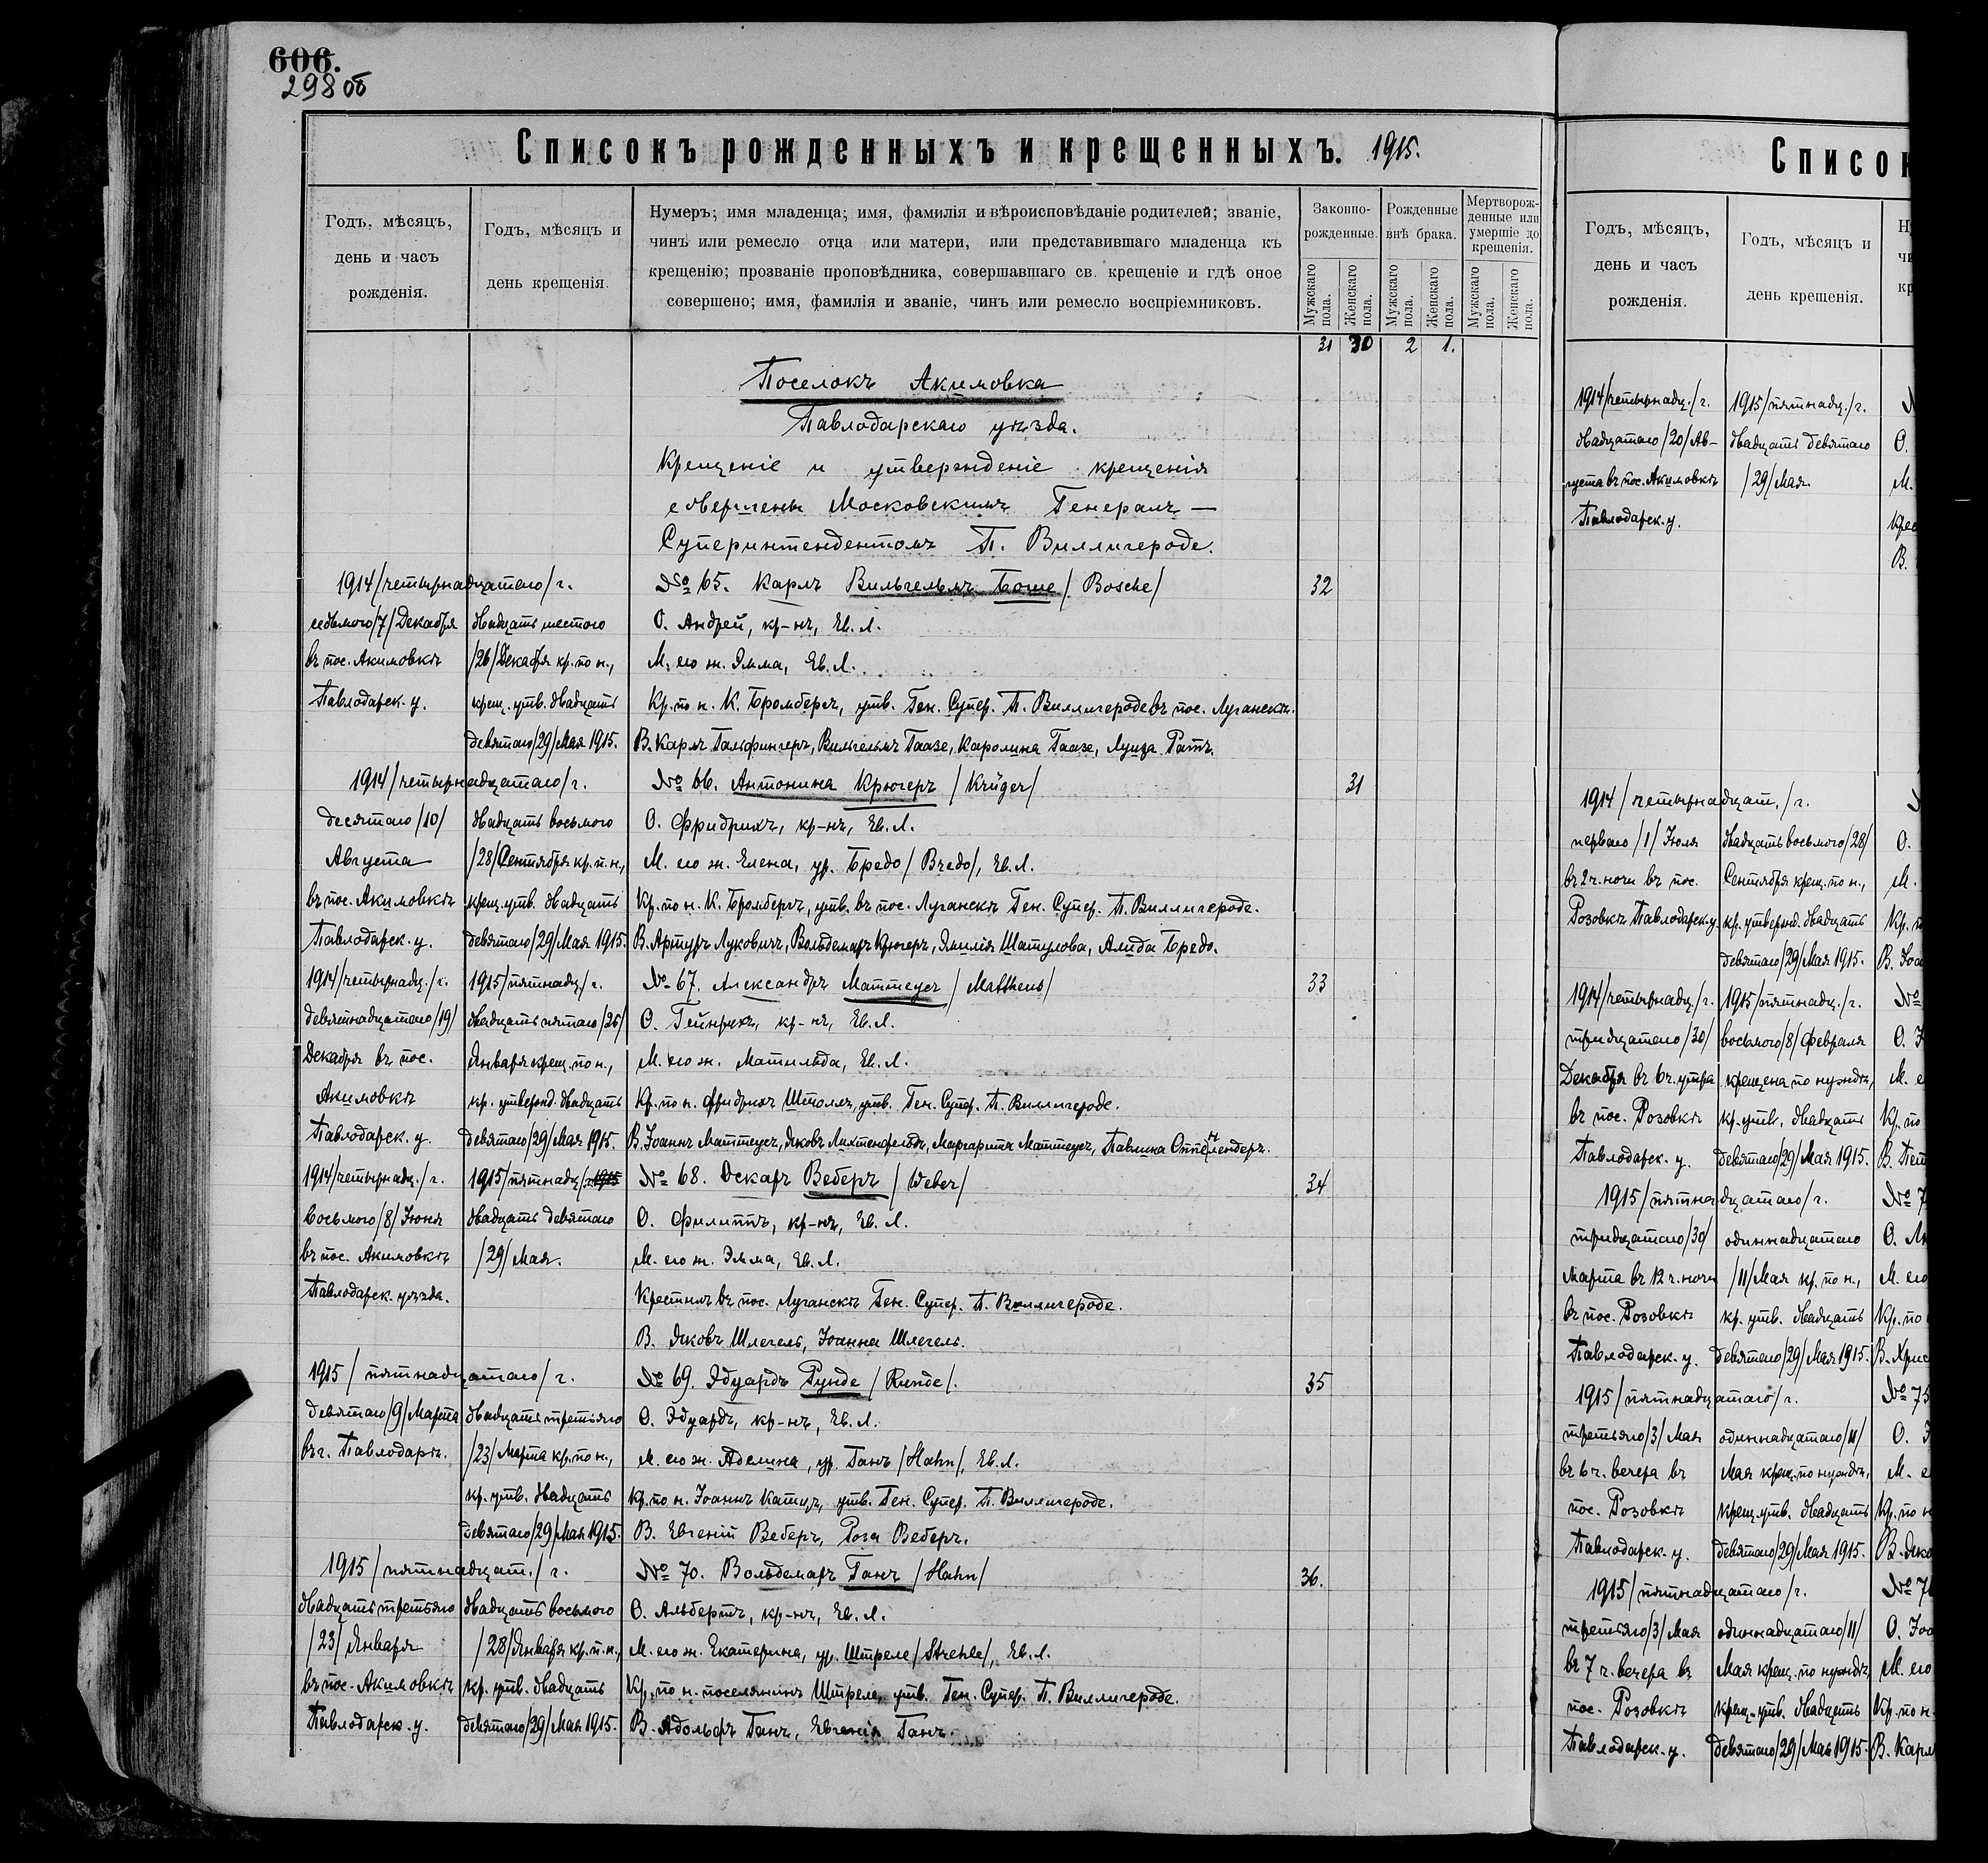 606.
298об
Списокъ рожденныхъ и крещенныхъ. 1915.
Годъ, мѣсяцъ,
день и часъ
рожденія.
Годъ, мѣсяцъ и
день крещенія.
Нумеръ; имя младенца; имя, фамилія и вѣроисповѣданіе родителей; званіе,
чинъ или ремесло отца или матери, или представившаго младенца къ
крещенію; прозваніе проповѣдника, совершавшаго св. крещеніе и гдѣ оное
совершено; имя, фамилія и званіе, чинъ или ремесло воспріемниковъ.
Законно-
рожденные.
Рожденные
внѣ брака.
Мертворож-
денные или
умершіе до
крещенія.
Мужскаго пола.
Женскаго пола.
Мужскаго пола.
Женскаго пола.
Мужскаго пола.
Женскаго пола.
31 30 2 1.
Поселокъ Акимовка
Павлодарскаго уѣзда.
Крещеніе и утвержденіе крещенія
совершены Московскимъ Генералъ-
Суперинтендентомъ П. Виллигероде.
1914/четырнадцатаго/г.
седьмого/7/Декабря
въ пос. Акимовкѣ
Павлодарск. у.
двадцать шестого
/26/Декабря кр. по н.,
крещ. утв. двадцать
девятаго/29/Мая 1915.
№ 65. Карлъ Вильгельмъ Боше /Bosche/ 32
О. Андрей, кр-нъ, Ев. Л.
М. его ж. Эмма, Ев. Л.
Кр. по н. К. Бромбергъ, утв. Ген. Супер. П. Виллигероде въ пос. Луганскѣ.
В. Карлъ Гальфингеръ, Вильгельмъ Гаазе, Каролина Гаазе, Луиза Ратъ.
1914/четырнадцатаго/г.
десятаго/10/
Августа
въ пос. Акимовкѣ
Павлодарск. у.
двадцать восьмого
/28/Сентября кр. п. н.,
крещ. утв. двадцать
девятаго/29/Мая 1915.
№ 66. Антонина Крюгеръ /Krüger/ 31
О. Фридрихъ, кр-нъ, Ев. Л.
М. его ж. Елена, ур. Бредо /Bredo/, Ев. Л.
Кр. по н. К. Бромбергъ, утв. въ пос. Луганскѣ Ген. Супер. П. Виллигероде.
В. Артуръ Луковичъ, Вольдемаръ Крюгеръ, Эмилія Шатулова, Алида Бредо.
1914/четырнадц./г.
девятнадцатаго/19/
Декабря въ пос.
Акимовкѣ
Павлодарск. у.
1915/пятнадц/г.
двадцать пятаго/25/
Января крещ. по н.,
кр. утвержд. двадцать
девятаго/29/Мая 1915.
№ 67. Александръ Маттеусъ /Mattheus/ 33
О. Гейнрихъ, кр-нъ, Ев. Л.
М. его ж. Матильда, Ев. Л.
Кр. по н. Фридрихъ Штолль, утв. Ген. Супер. П. Виллигероде.
В. Іоаннъ Маттеусъ, Яковъ Лихтенфельдъ, Маргарита Маттеусъ, Павлина
1914/четырнадц./г.
восьмого/8/Іюня
въ пос. Акимовкѣ
Павлодарск. уѣзда.
1915/пятнадц/г. 1915
двадцать девятаго
/29/Мая.
№ 68. Оскаръ Веберъ /Weber/ 34
О. Филиппъ, кр-нъ, Ев. Л.
М. его ж. Эмма, Ев. Л.
Крестилъ въ пос. Луганскѣ Ген. Супер. П. Виллигероде.
В. Яковъ Шлегель, Іоанна Шлегель.
1915/пятнадцатаго/г.
девятаго/9/Марта
въ г. Павлодарѣ.
двадцать третьяго
/23/Марта кр. по н.,
кр. утв. двадцать
девятаго/29/Мая 1915.
№ 69. Эдуардъ Рунде /Runde/. 35
О. Эдуардъ, кр-нъ, Ев. Л.
М. его ж. Аделина, ур. Ганъ /Hahn/, Ев. Л.
Кр. по н. Іоаннъ Катцъ, утв. Ген. Супер. П. Виллигероде.
В. Евгеній Веберъ, Роза Веберъ.
1915/пятнадцат./г.
двадцать третьяго
/23/Января
въ пос. Акимовкѣ
Павлодарск. у.
двадцать восьмого
/28/Января кр. п. н.,
кр. утв. двадцать
девятаго/29/Мая 1915.
№ 70. Вольдемаръ Ганъ /Hahn/ 36.
О. Альбертъ, кр-нъ, Ев. Л.
М. его ж. Екатерина, ур. Штреле /Strehle/, Ев. Л.
Кр. по н. поселянинъ Штреле, утв. Ген. Супер. П. Виллигероде.
В. Адольфъ Ганъ, Евгенія Ганъ.
Список
Годъ, мѣсяцъ,
день и часъ
рожденія.
Годъ, мѣсяцъ и
день крещенія.
1914/четырнадц./г.
двадцатаго/20/Ав-
густа въ пос. Акимовкѣ
Павлодарск. у.
1915/пятнадц./г.
двадцать девятаго
/29/Мая
О.
М.
Крес
В.
1914/четырнадцат./г.
перваго/1/Іюля
въ 2 ч. ночи въ пос.
Розовкѣ Павлодарск. у.
двадцать восьмого/28/
Сентября крещ. по н.,
кр. утвержд. двадцать
девятаго/29/Мая 1915.
О.
М.
Кр. п
В. Іоа
1914/четырнадц./г.
тридцатаго/30/
Декабря въ 6 ч. утра
въ пос. Розовкѣ
Павлодарск. у.
1915/пятнадц./г.
восьмого/8/Февраля
крещена по нуждѣ,
кр. утв. двадцать
девятаго/29/Мая 1915.
№
О.
М. е
Кр. по
В. Пет
1915/пятнадцатаго/г.
тридцатаго/30/
Марта въ 12 ч. ночи
въ пос. Розовкѣ
Павлодарск. у.
одиннадцатаго
/11/Мая кр. по н.,
кр. утв. двадцать
девятаго/29/Мая 1915.
№ 7
О.
М. его
Кр. по
В. Хрис
1915/пятнадцатаго/г.
третьяго/3/Мая
въ 6 ч. вечера въ
пос. Розовкѣ
Павлодарск. у.
одиннадцатаго/11/
Мая крещ. по нуждѣ,
крещ. утв. двадцать
девятаго/29/Мая 1915.
№ 75
О.
М. е
Кр. по н
В. Яко
1915/пятнадцатаго/г.
третьяго/3/Мая
въ 7 ч. вечера въ
пос. Розовкѣ
Павлодарск. у.
одиннадцатаго/11/
Мая крещ. по нуждѣ,
крещ. утв. двадцать
девятаго/29/Мая 1915.
№ 7
О. Іоа
М. его
Кр. по н.
В. Карл